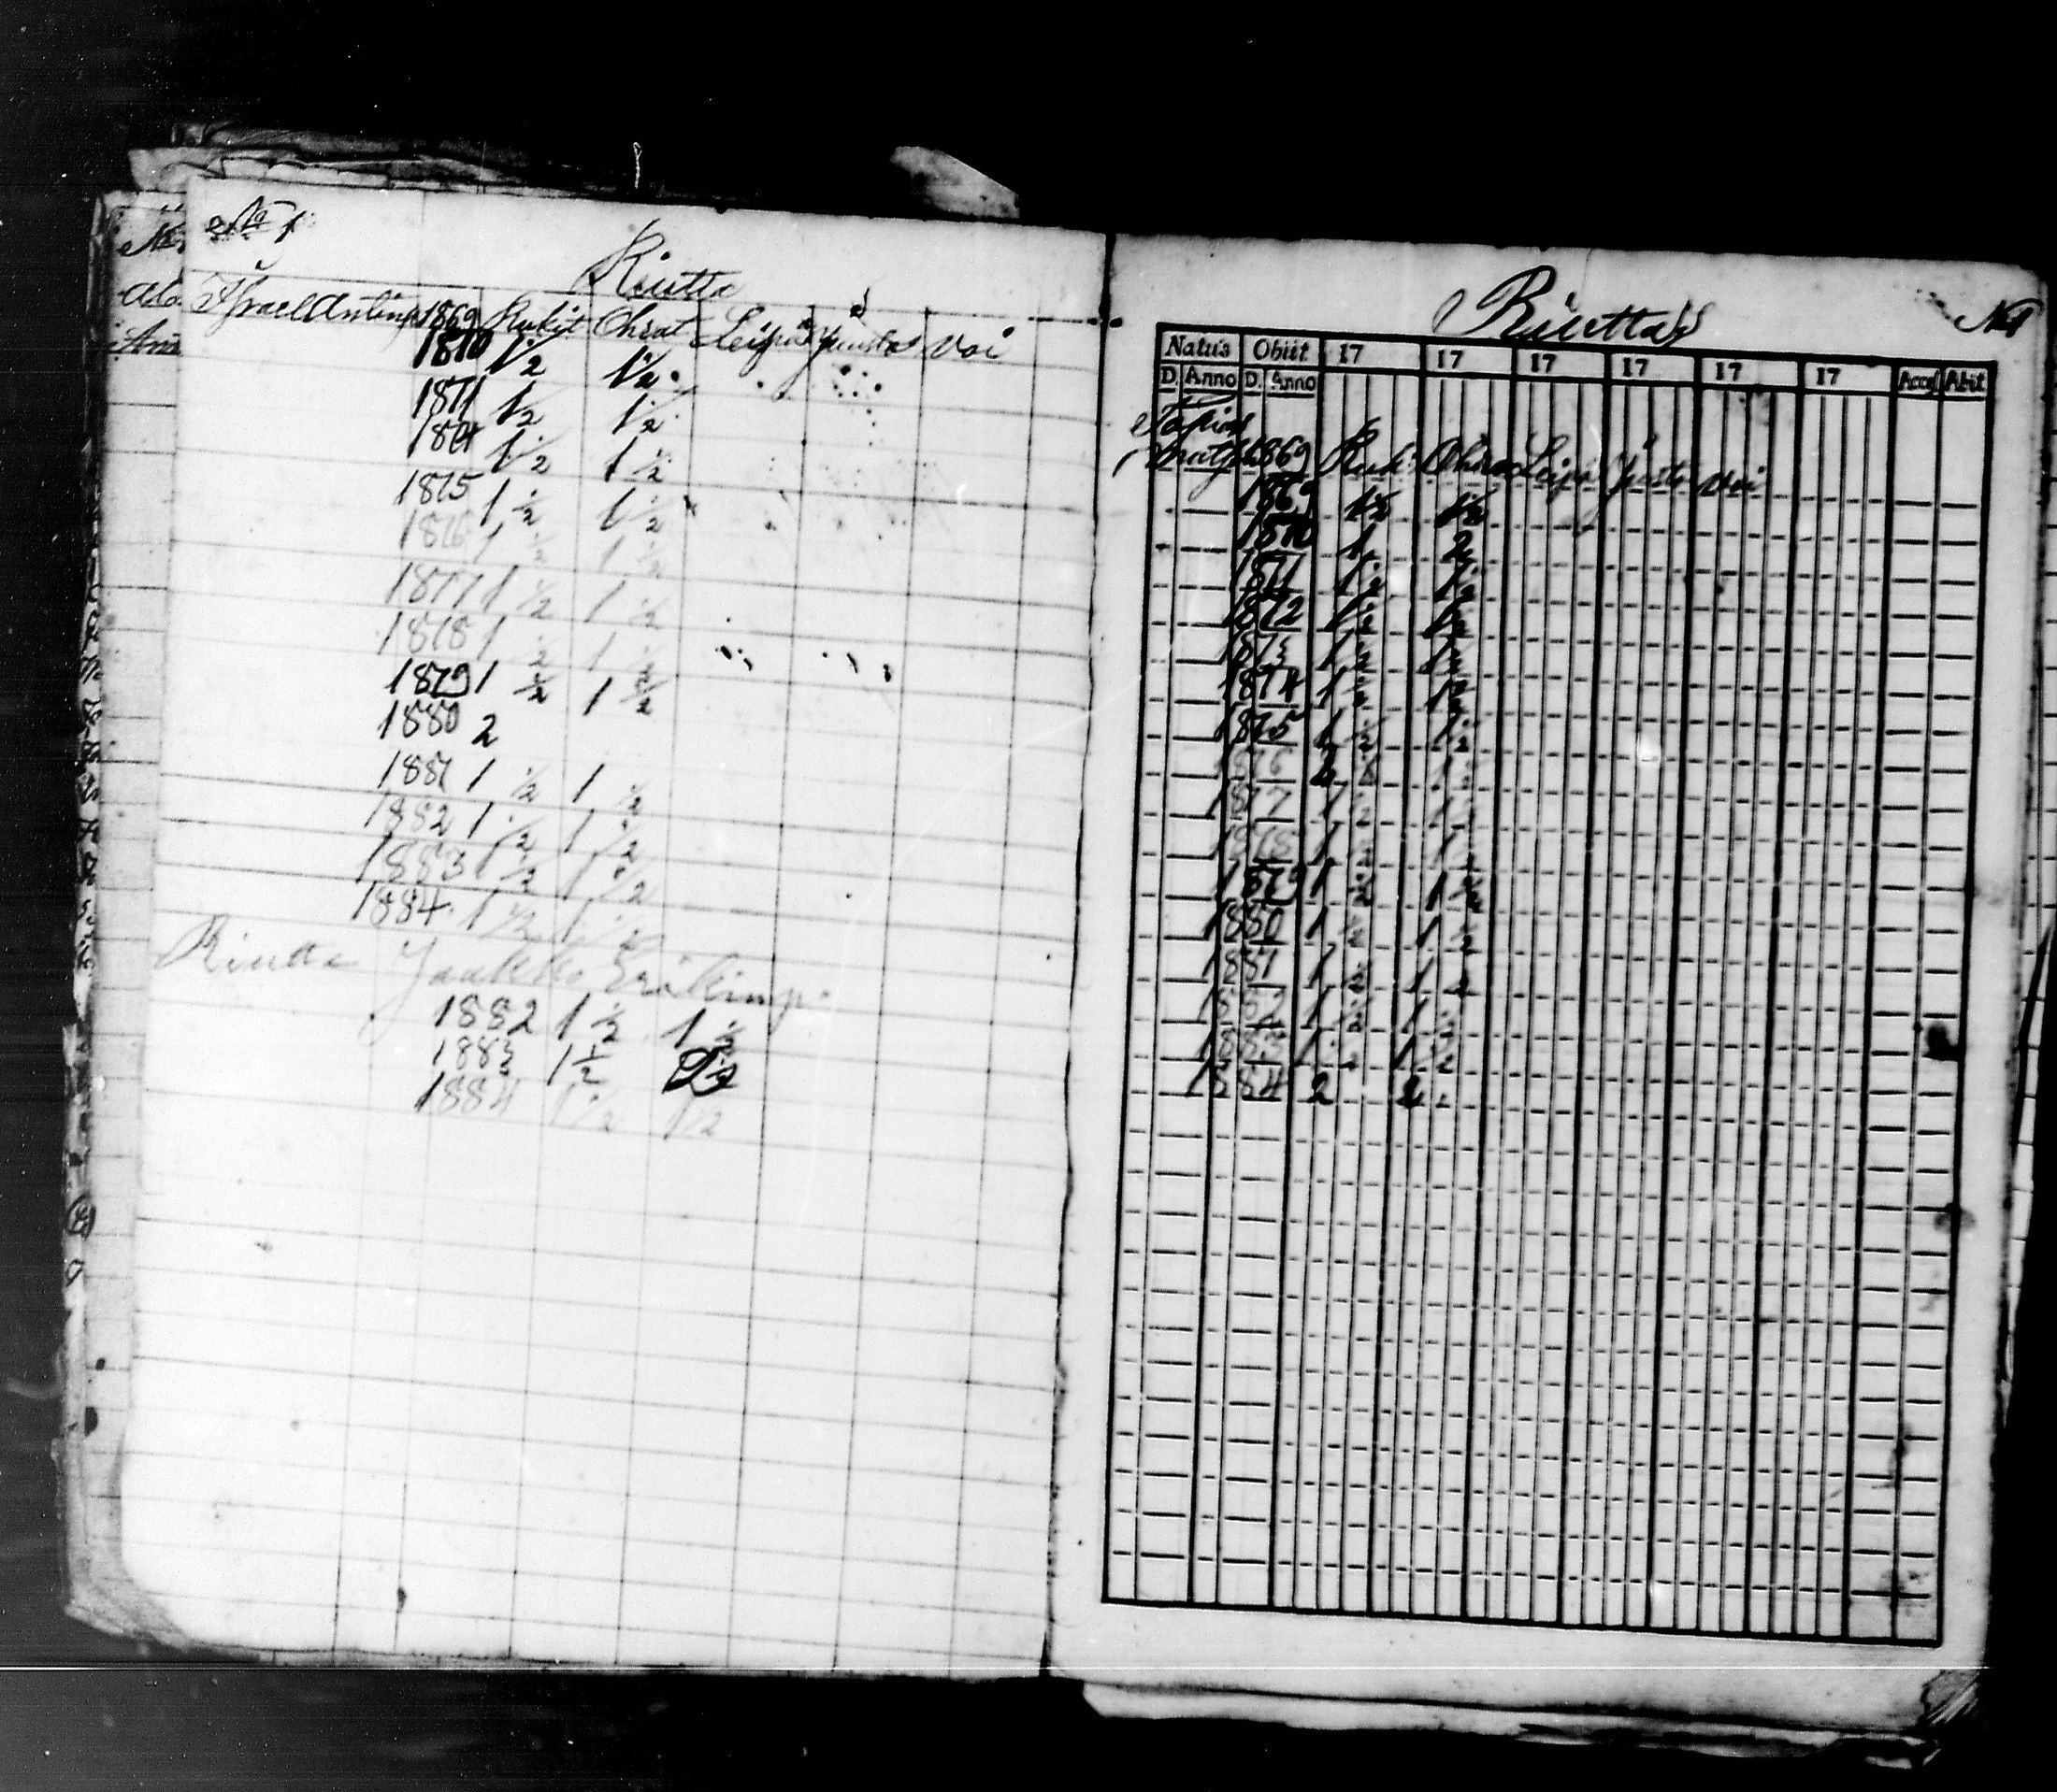 No 1
Riutta
Israel Antinp 1869 Rukit Ohrat Leipiä juusto voi
1870 1/2 1/2
1871 1/2 1/2
1874 1 1/2 1 1/2
1875 1 1/2 1 1/2
1876 1 1/2 1 1/2
1877 1 1/2 1 1/2
1878 1 1/2 1 1/2
1879 1 1/2 1 1/2
1880 2
1881 1 1/2 1 1/2
1882 1 1/2 1 1/2
1883 1 1/2 1 1/2
1884 1 1/2 1 1/2
Riutta Jaakko Erikinp.
1882 1 1/2 1 1/2
1883 1 1/2
1884 1 1/2 1/2
Riutta No 1
Natus Obiit 17 17 17 17 17 17 Acceſ Abit
D. Anno D. Anno
Tapio
1869 Ruk: Ohra Leipä juusto voi
1869 1 1/2 1/2
1870 1 2
1871 1 1/2 1 1/2
1872 1 1/2 1 1/2
1873 1 1/2 1 1/2
1874 1 1/2 1 1/2
1875 1 1/2 1 1/2
1876
1877 1 1/2 1 1/2
1878 1 1/2 1 1/2
1879 1 1/2 1 1/2
1880 1 1/2 1 1/2
1881 1 1/2 1 1/2
1882 1 1/2 1 1/2
1883 1 1/2 1 1/2
1884 2 2